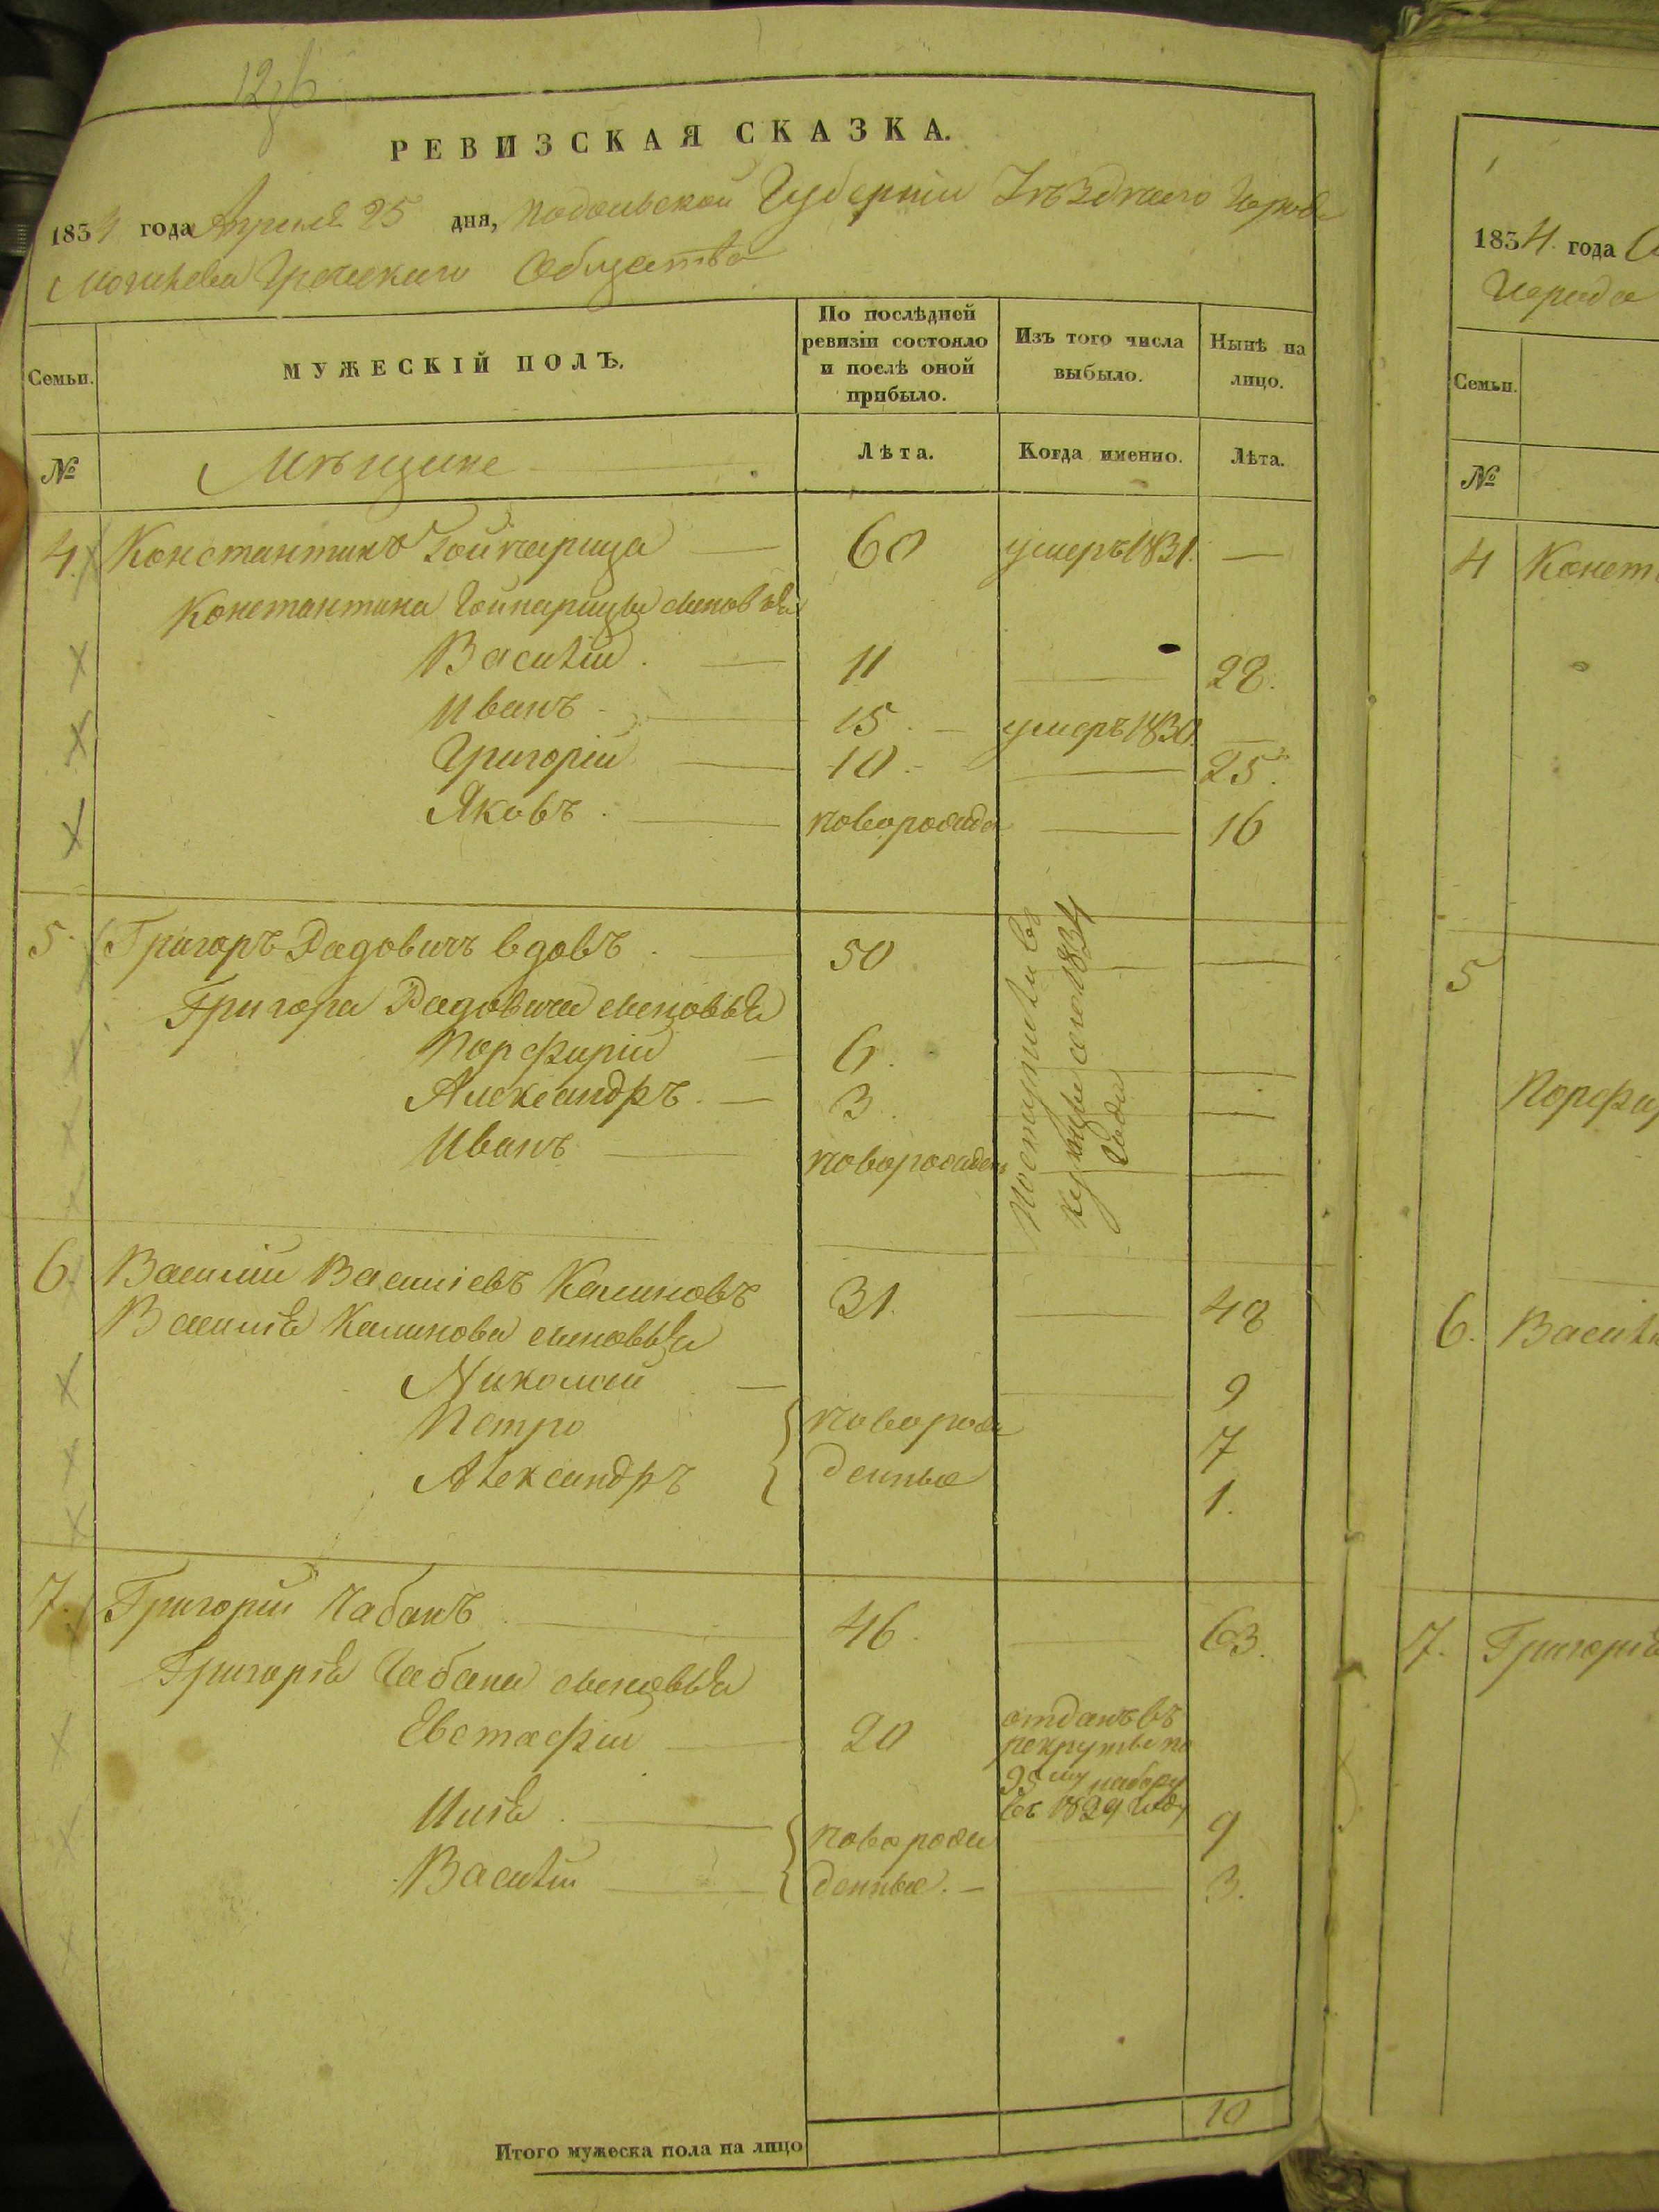 РЕВИЗСКАЯ СКАЗКА.
1834 года Апреля 25 дня, Подольской Губернии Уѣзднаго Города
Могилева Греческаго Общества
Семьи. МУЖЕСКІЙ ПОЛЪ. По послѣдней ревизіи состояло и послѣ оной прибыло. Изъ того числа выбыло. Нынѣ на лицо.
№ Мѣщане Лѣта. Когда именно. Лѣта.
4. Константинъ 60 умеръ 1831. —
Константина сыновья
Василій. 11 28.
Иванъ 15. умеръ 1830. —
Григорій 10. 25.
Яковъ. новорожден 16
5. Григоръ Радовичъ вдовъ. 50 —
Григора Радовича сыновья
Порфирій 6. —
Александръ. 3. —
Иванъ новорожден —
Поступили въ
купцы сего 1834
Года
6. Василій Василіевъ Калиновъ 31. 48
Василія Калинова сыновья
Николай 9
Петро новорож 7
Александръ денные 1.
7. Григорій Чабанъ 46. 63.
Григорія Чабана сыновья
Евстафій 20 отданъ въ
рекруты по
95му набору
въ 1829 году
Илія новорож 9
Василій денные. 3.
Итого мужеска пола на лицо 10
1834. года
Города
Семьи.
№
4 Конст
5
Порфир
6. Васил
7. Григорі